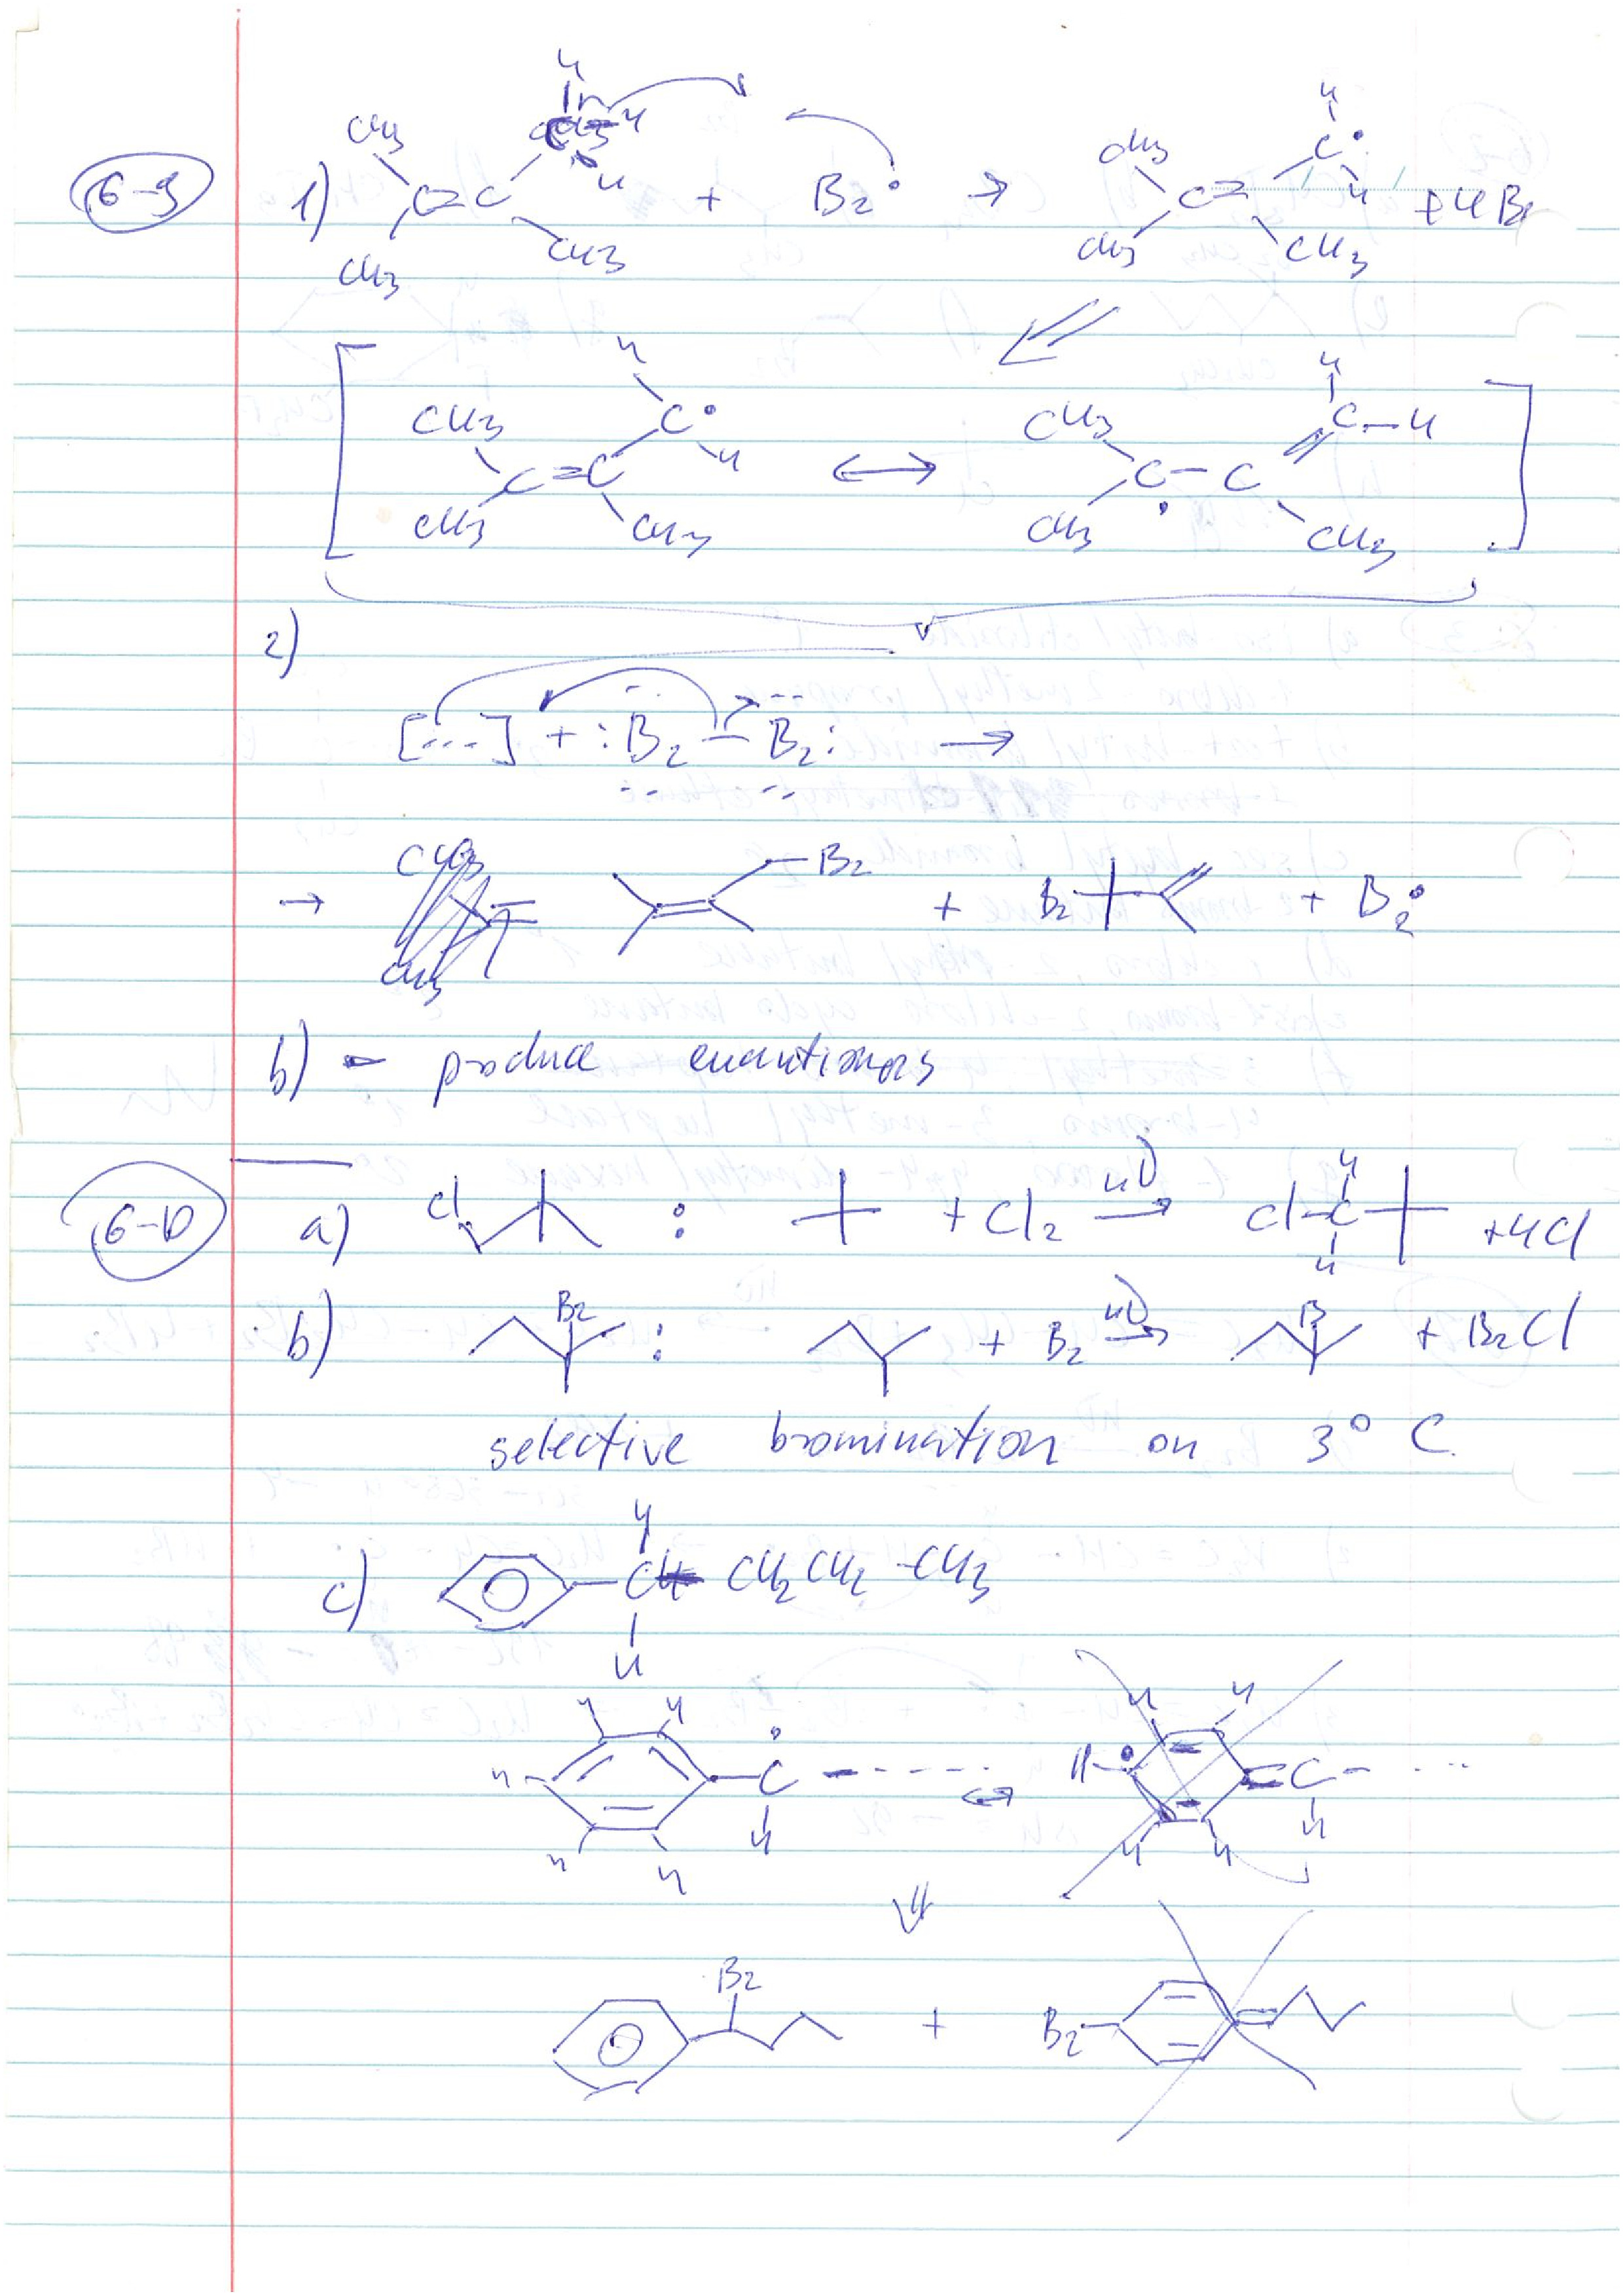 6-9
1)
H
CH3 H
C=C H + Br• → CH3 C=C C• H H + HBr
CH3 CH3 CH3 CH3
H H
CH3 C• CH3 C-H
C=C H ↔ C-C
CH3 CH3 CH3 • CH3
2)
[...] + :Br-Br: →
→ Br + Br + Br•
b) - produce enantiomers
6-10 a) Cl : + Cl2 hν→ Cl-C H H + HCl
b) Br : + Br2 hν→ Br + BrCl
selective bromination on 3° C.
H
c) C CH2CH2-CH3
H
H H H H
H C• ---- ↔ H • =C- ...
H H H H H H
Br
+ Br